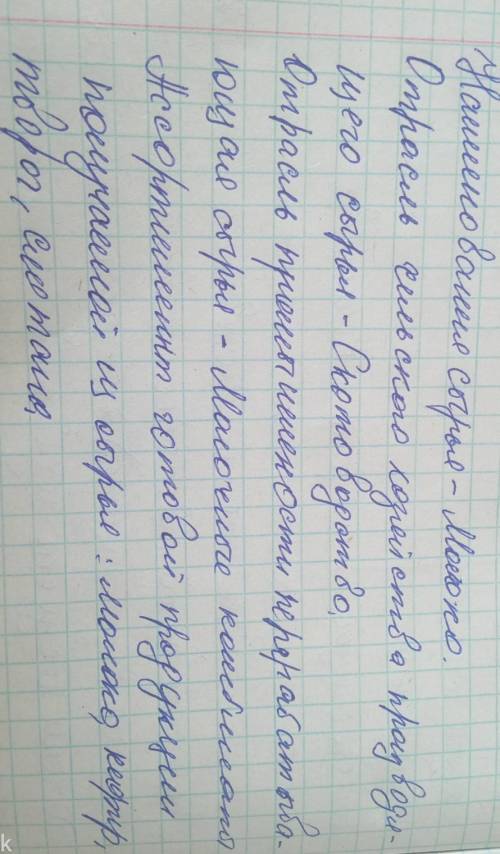 Наименования сырья - Молоко.
Отрасль сельского хозяйства производя-
щего сырья - Скотоводство,
Отрасль промышленности перерабатыва-
ющая сырья - Молочные комбинаты
Ассортимент готовой продукции
получаемой из сырья: молоко, кефир,
творог, сметана
k